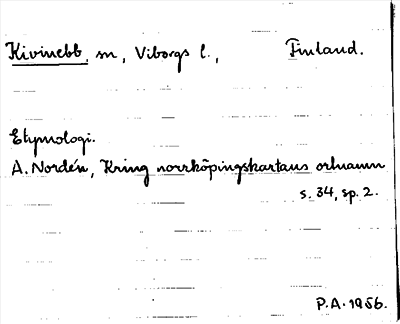 Kivinebb, sn, Viborgs l., Finland.
Etymologi.
A. Nordén, Kring norrköpingskartans ortnamn
s. 34, sp. 2.
P.A. 1956.